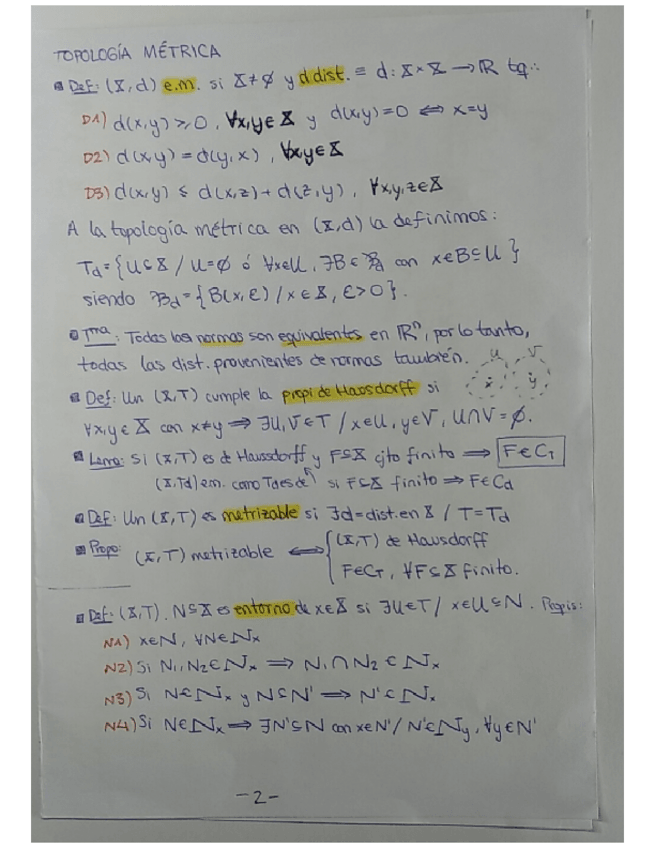 TOPOLOGÍA MÉTRICA
▪ Def: (X,d) e.m. si X≠∅ y d dist. ≡ d: X×X → ℝ tq.:
D1) d(x,y) ≥ 0, ∀x,y∈X y d(x,y)=0 ⇔ x=y
D2) d(x,y) = d(y,x), ∀x,y∈X
D3) d(x,y) ≤ d(x,z)+d(z,y), ∀x,y,z∈X
A la topología métrica en (X,d) la definimos:
T_d={U⊆X / U=∅ ó ∀x∈U, ∃B∈ℬ_d con x∈B⊆U}
siendo ℬ_d={B(x,ε) / x∈X, ε>0}.
▪ Tma: Todas las normas son equivalentes en ℝⁿ, por lo tanto,
todas las dist. provenientes de normas también.
U V
x y
▪ Def: Un (X,T) cumple la propi de Hausdorff si
∀x,y∈X con x≠y ⇒ ∃U,V∈T / x∈U, y∈V, U∩V=∅.
▪ Lema: Si (X,T) es de Haussdorff y F⊆X cjto finito ⇒ F∈C_T
(X,Td) e.m. como Td es de si F⊆X finito ⇒ F∈C_d
▪ Def: Un (X,T) es metrizable si ∃d=dist. en X / T=T_d
▪ Propo: (X,T) metrizable ⇔ { (X,T) de Hausdorff
F∈C_T, ∀F⊆X finito.
▪ Def: (X,T). N⊆X es entorno de x∈X si ∃U∈T / x∈U⊆N. Propis:
N1) x∈N, ∀N∈N_x
N2) Si N₁,N₂∈N_x ⇒ N₁∩N₂∈N_x
N3) Si N∈N_x y N⊆N' ⇒ N'∈N_x
N4) Si N∈N_x ⇒ ∃N'⊆N con x∈N' / N'∈N_y, ∀y∈N'
-2-